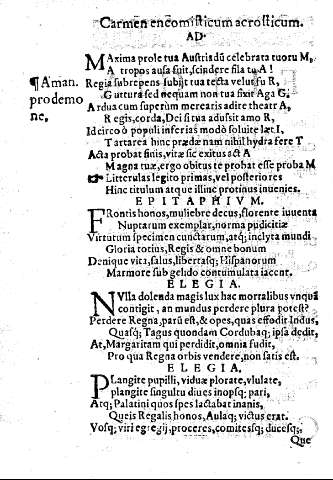 Carmen encomisticum acrosticum.
AD.
MAxima prole tua Austriadũ celebrata tuoru M,
A tropos ausa fuit, scindere fila tu A!
¶ Aman.
Regia subrepens subijt tua tecta velut fu R,
pro demo
Guttura sed nequam non tua fixit Aga G.
ne,
Ardua cum superùm mercaris adire theatr A,
Regis, corda, Dei si tua adussit amo R,
Idcirco ò populi inferias modò soluite læt I,
Tartarea hinc prædæ nam nihil hydra fere T
Acta probat finis, vitæ sic exitus act A
Magna tuæ, ergo obitus te probat esse proba M
Litterulas legito primas, vel posteriores
Hinc titulum atque illinc protinus inuenies.
EPITAPHIVM.
FRontis honos, muliebre decus, florente iuuenta
Nuptarum exemplar, norma pudicitiæ
Virtutum specimen cunctarum, atq; inclyta mundi
Gloria totius, Regis & omne bonum
Denique vita, salus, libertasq; Hispanorum
Marmore sub gelido contumulata iacent.
ELEGIA.
NVlla dolenda magis lux hac mortalibus vnquã
contigit, an mundus perdere plura potest?
Perdere Regna, parũ est, & opes, quas effodit Indus,
Quasq; Tagus quondam Cordubaq; ipsa dedit,
At, Margaritam qui perdidit, omnia fudit,
Pro qua Regna orbis vendere, non satis est.
ELEGIA.
PLangite pupilli, viduæ plorate, vlulate,
plangite singultu diues inopsq; pari,
Atq; Palatini quos spes lactabat inanis,
Queis Regalis honos, Aulaq; victus erat.
Vosq; viri egregij, proceres, comitesq; ducesq;,
Que